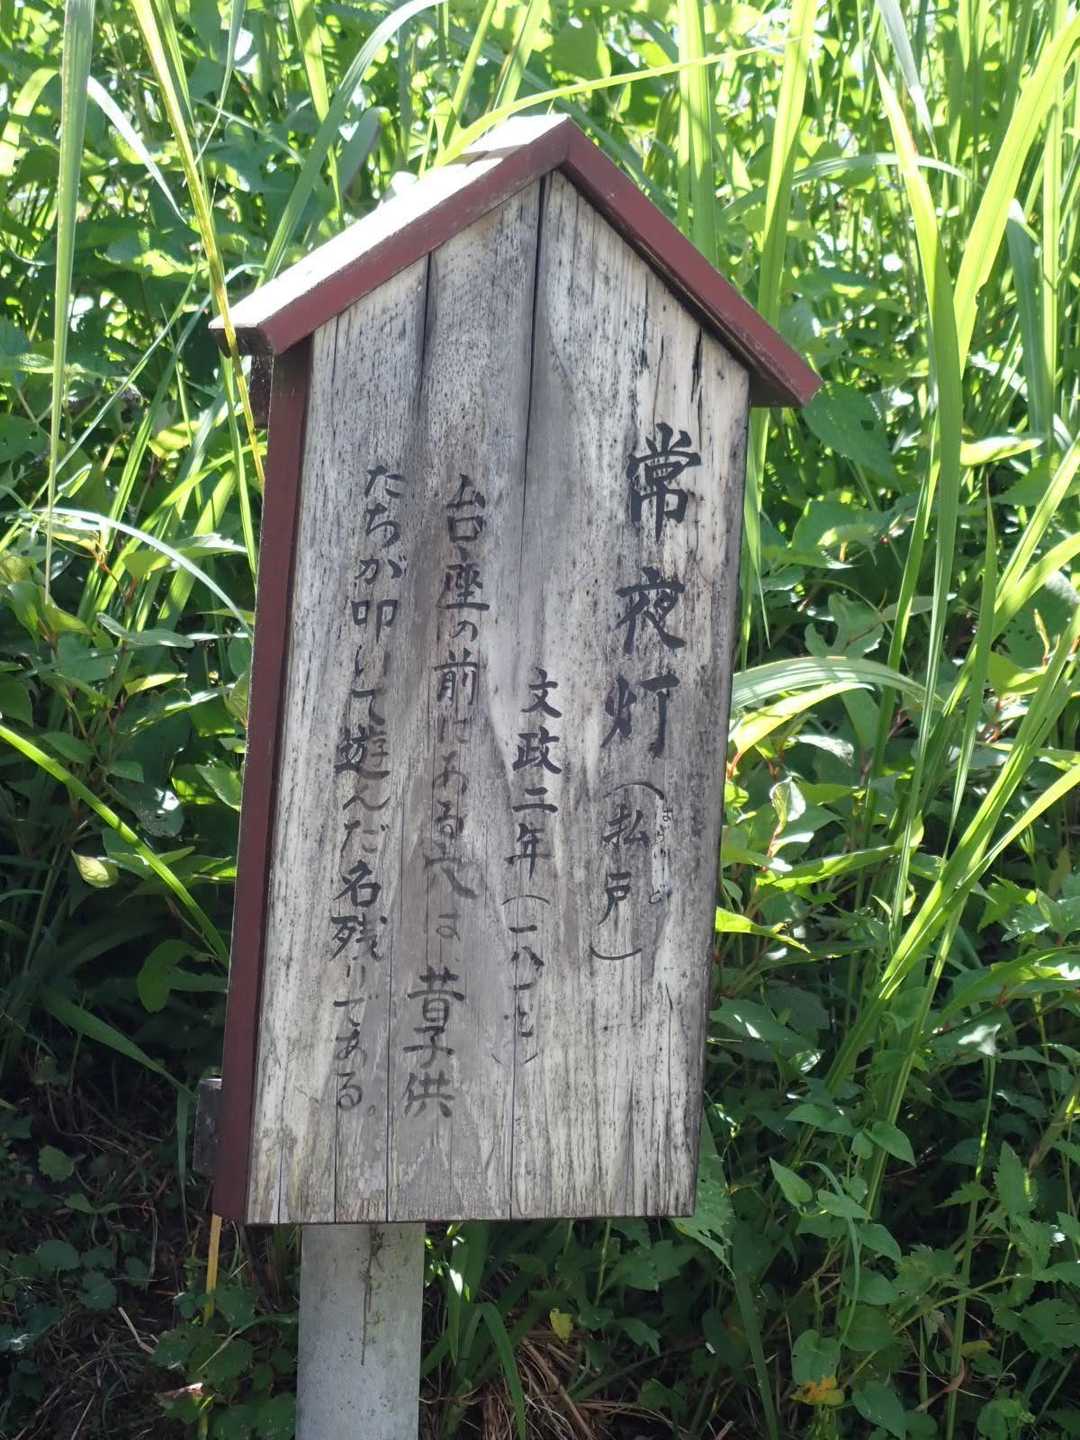 常夜灯(払戸)
はらりと
文政二年(一八一九)
台座の前にある穴は昔子供
たちが叩いて遊んだ名残りである。